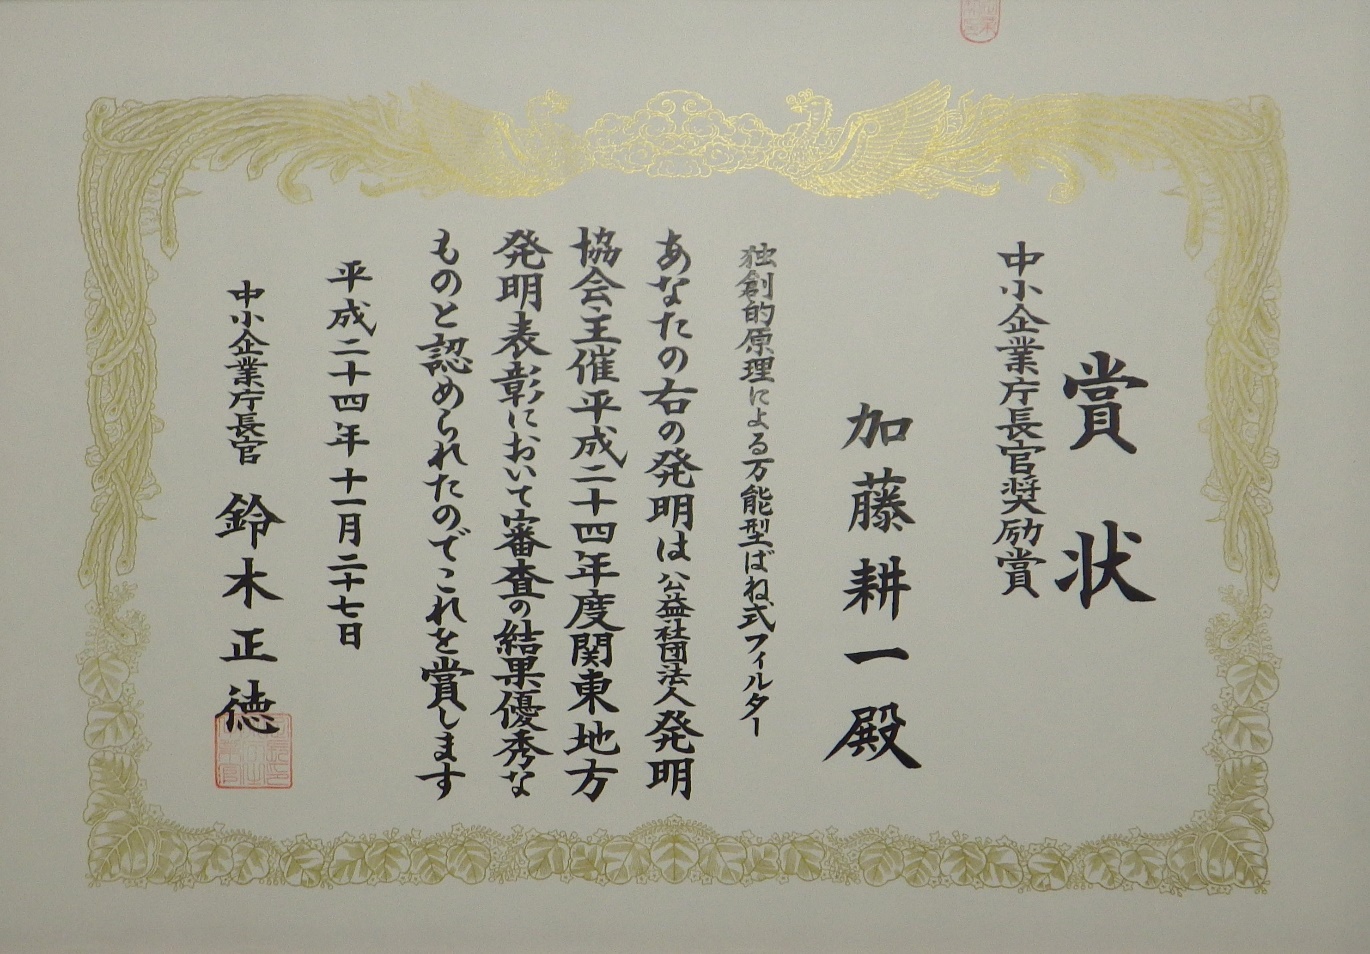 賞状
中小企業庁長官奨励賞
加藤耕一殿
独創的原理による万能型ばね式フィルター
あなたの右の発明は公益社団法人発明
協会主催平成二十四年度関東地方
発明表彰において審査の結果優秀な
ものと認められたのでこれを賞します
平成二十四年十一月二十七日
中小企業庁長官 鈴木正徳